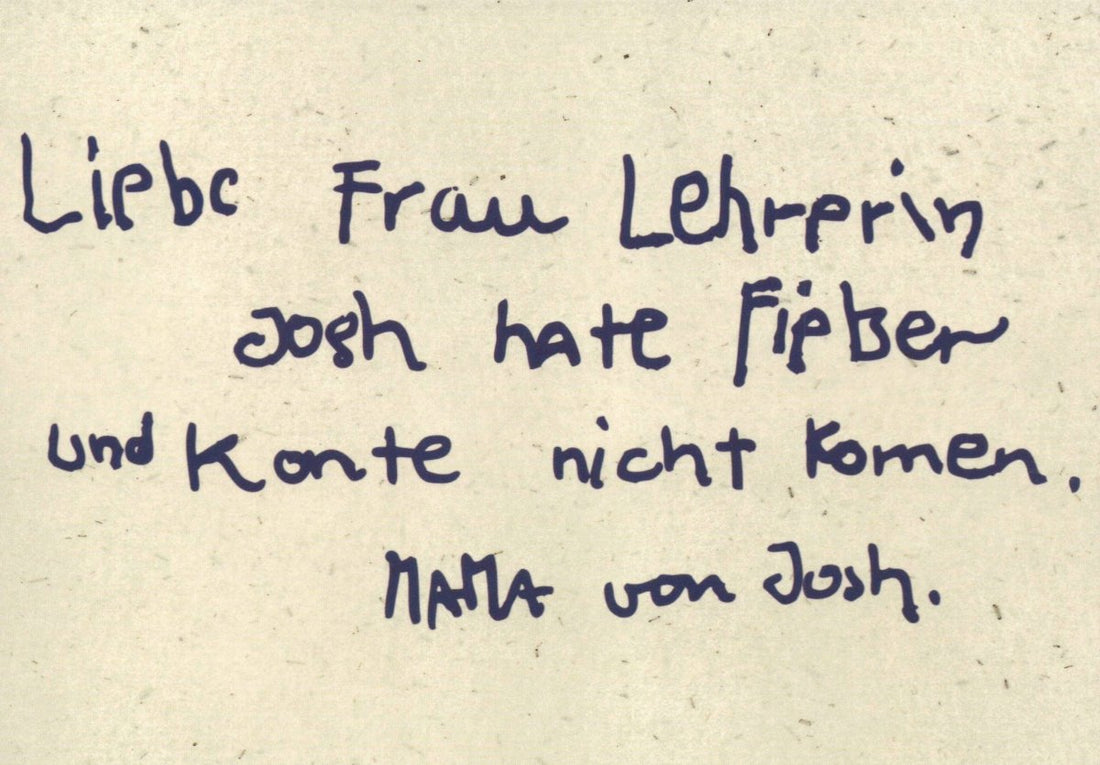 Liebe Frau Lehrerin
Josh hate Fieber
und Konte nicht Komen.
MAMA von Josh.